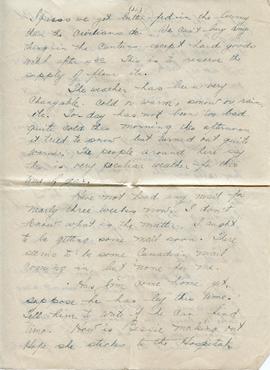 I guess we get better fed in the
than the civilians do. We can't buy any
thing in the Canteen except hard goods
until after . This is to reserve the
supply of flour etc.
The weather has been very
changable. cold or warm, snow or rain,
etc. To-day has not been too bad
quite cold this morning this afternoon
it tried to snow but turned out quite
warm. The people around here say
it is very peculiar weather for this
time of year.
Have not had any mail for
nearly three weeks now. I don't
know what is the matter. I ought
to be getting some mail soon. There
seems to be some Canadian mail
coming in, but none for me.
Has Jim come home yet,
suppose he has by this time.
Tell him to write if he can find
time. How is Bessie making out
Hope she sticks to the Hospital,